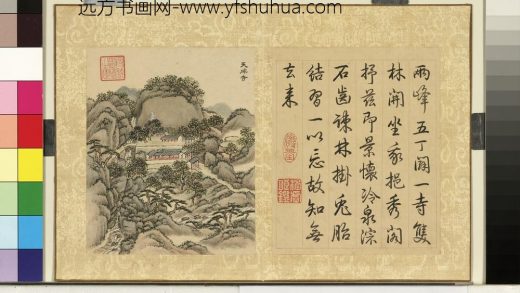 远方书画网-www.yfshuhua.com
天成寺
兩峰五丁闢一寺雙
林開坐我挹秀閣
抒茲即景懷泠泉淙
石齒疎林掛兔胎
結習一以忘故知無
去来